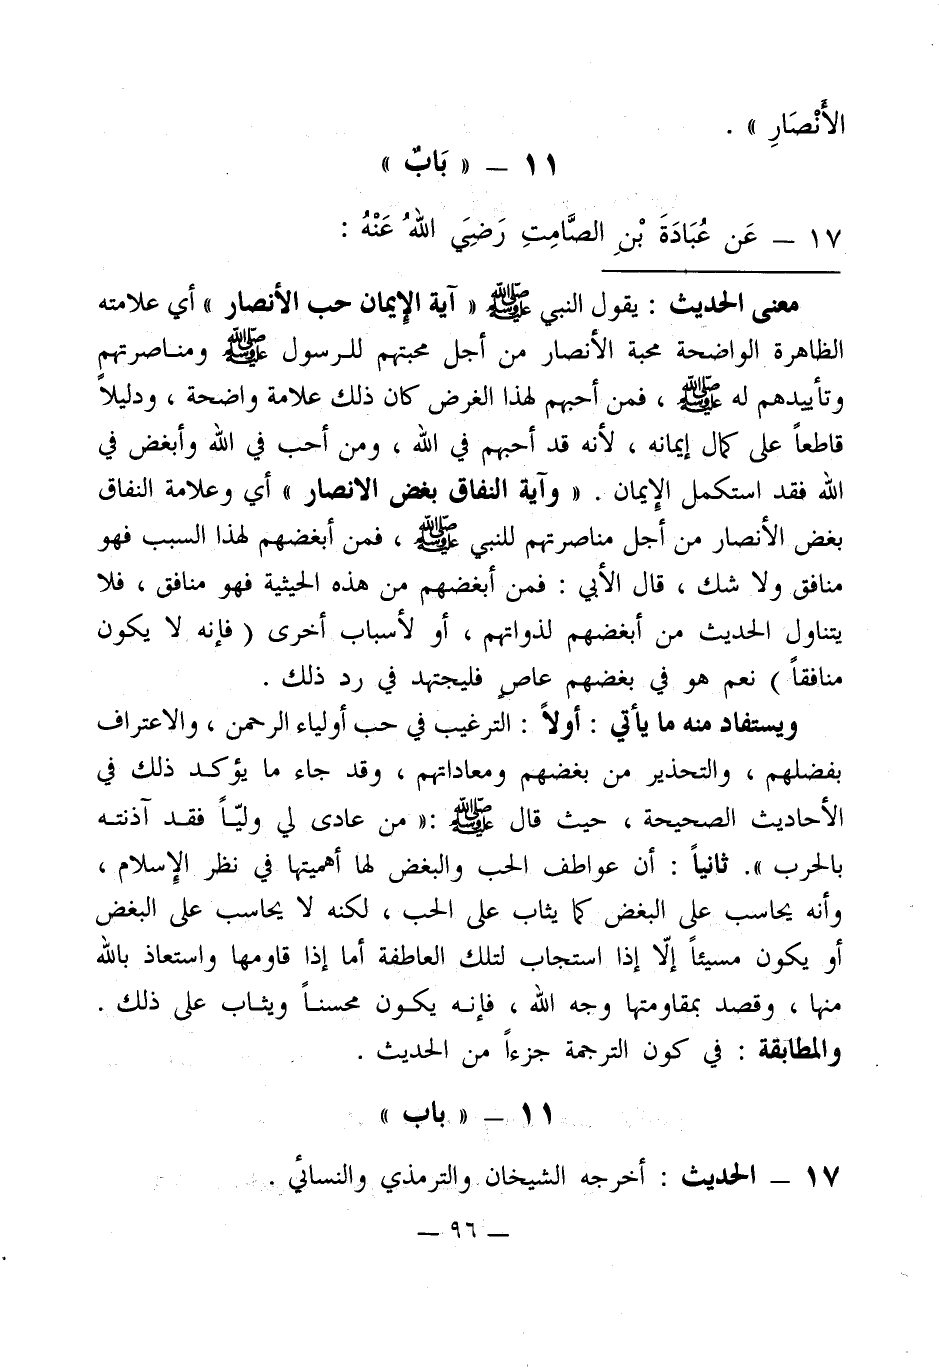 الأَنْصَارِ » .
١١ – « بَابٌ »
١٧ – عَن عُبَادَةَ بْنِ الصَّامِتِ رَضِيَ اللهُ عَنْهُ :
معنى الحديث : يقول النبي ﷺ « آية الإيمان حب الأنصار » أي علامته
الظاهرة الواضحة محبة الأنصار من أجل محبتهم للرسول ﷺ ومناصرتهم
وتأييدهم له ﷺ ، فمن أحبهم لهذا الغرض كان ذلك علامة واضحة ، ودليلاً
قاطعاً على كمال إيمانه ، لأنه قد أحبهم في الله ، ومن أحب في الله وأبغض في
الله فقد استكمل الإيمان . « وآية النفاق بغض الانصار » أي وعلامة النفاق
بغض الأنصار من أجل مناصرتهم للنبي ﷺ ، فمن أبغضهم لهذا السبب فهو
منافق ولا شك ، قال الأبي : فمن أبغضهم من هذه الحيثية فهو منافق ، فلا
يتناول الحديث من أبغضهم لذواتهم ، أو لأسباب أخرى ( فإنه لا يكون
منافقاً ) نعم هو في بغضهم عاصٍ فليجتهد في رد ذلك .
ويستفاد منه ما يأتي : أولاً : الترغيب في حب أولياء الرحمن ، والاعتراف
بفضلهم ، والتحذير من بغضهم ومعاداتهم ، وقد جاء ما يؤكد ذلك في
الأحاديث الصحيحة ، حيث قال ﷺ :« من عادى لي وليّاً فقد آذنته
بالحرب ». ثانياً : أن عواطف الحب والبغض لها أهميتها في نظر الإسلام ،
وأنه يحاسب على البغض كما يثاب على الحب ، لكنه لا يحاسب على البغض
أو يكون مسيئاً إلّا إذا استجاب لتلك العاطفة أما إذا قاومها واستعاذ بالله
منها ، وقصد بمقاومتها وجه الله ، فإنه يكون محسناً ويثاب على ذلك .
والمطابقة : في كون الترجمة جزءاً من الحديث .
١١ – « باب »
١٧ – الحديث : أخرجه الشيخان والترمذي والنسائي .
– ٩٦ –